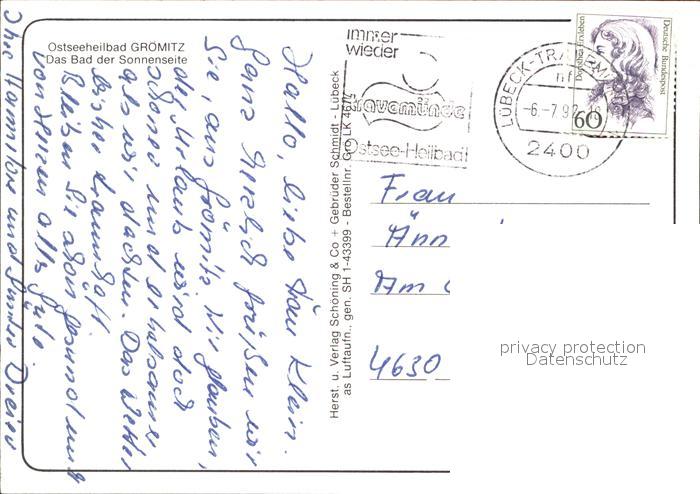 Ostseeheilbad GRÖMITZ
Das Bad der Sonnenseite
Hallo, liebe Frau Klein.
Ganz herzlich grüßen wir
Sie, aus Grömitz. Wir glauben,
der Urlaub wird doch
schöner und erholsamer
als wir dachten. Das Wetter
bisher traumhaft.
Bleiben Sie schön gesund und
von Herzen alles Gute.
Ihre Hannelore und Günter
Herst. u. Verlag Schöning & Co + Gebrüder Schmidt - Lübeck
as Luftaufn., gen. SH 1-43399 - Bestellnr. Grö LK
immer
wieder
travemünde
Ostsee-Heilbad!
LÜBECK-TRAVEMÜNDE
nf
-6.-7.92
2400
Dorothea Erxleben
Deutsche Bundespost
60
Frau
Änn
Am
4630
privacy protection
Datenschutz